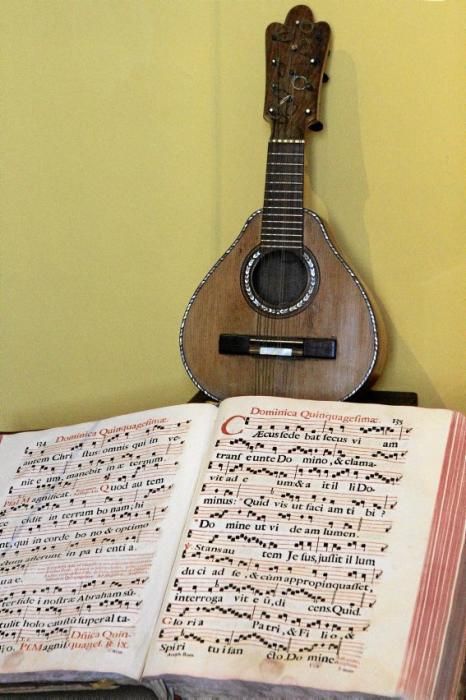 134 Dominica Quinquagesimæ.
autem Chri stus omnis qui in ve-
nit e um, manebit in æ ternum.
Ps.M agnificat. Quod au tem
ce cidit in terram bo nam; hi
sunt, qui in corde bo no & optimo
fructum afferunt in pa ti enti a.
terside i nostræ Abraham sú-
tulit holo caustú superal ta-
Dñica Quin-
li o. Ps.Magnif quages. Ps. ix.
Dominica Quinquagesimæ. 135
CÆcus sede bat secus vi am
transeunte Do mino, & clama-
vit ad e um: & a it il li Do-
minus: Quid vis ut faci am ti bi?
Do mine ut vi de am lumen.
℣. Stans au tem Je sus, jussit il lum
du ci ad se, & cùm appropinquasset,
interroga vit e ũ, di cens. Quid.
Glo ri a Patri, & Fi li o, &
Spiri tu i san cto. Do mine.